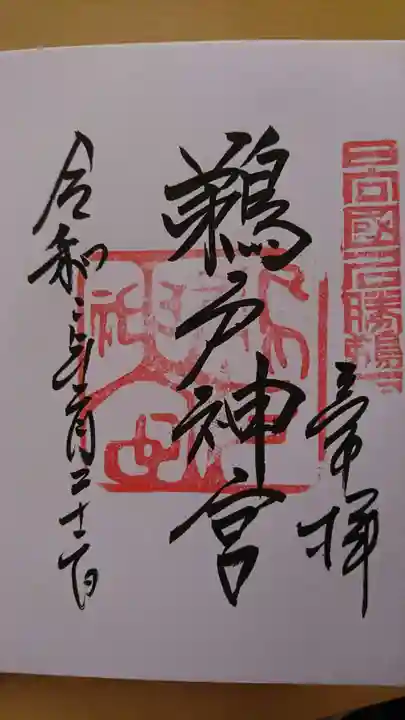 日向國名勝鵜戸
奉拝
鵜戸神宮
令和二年二月二十二日